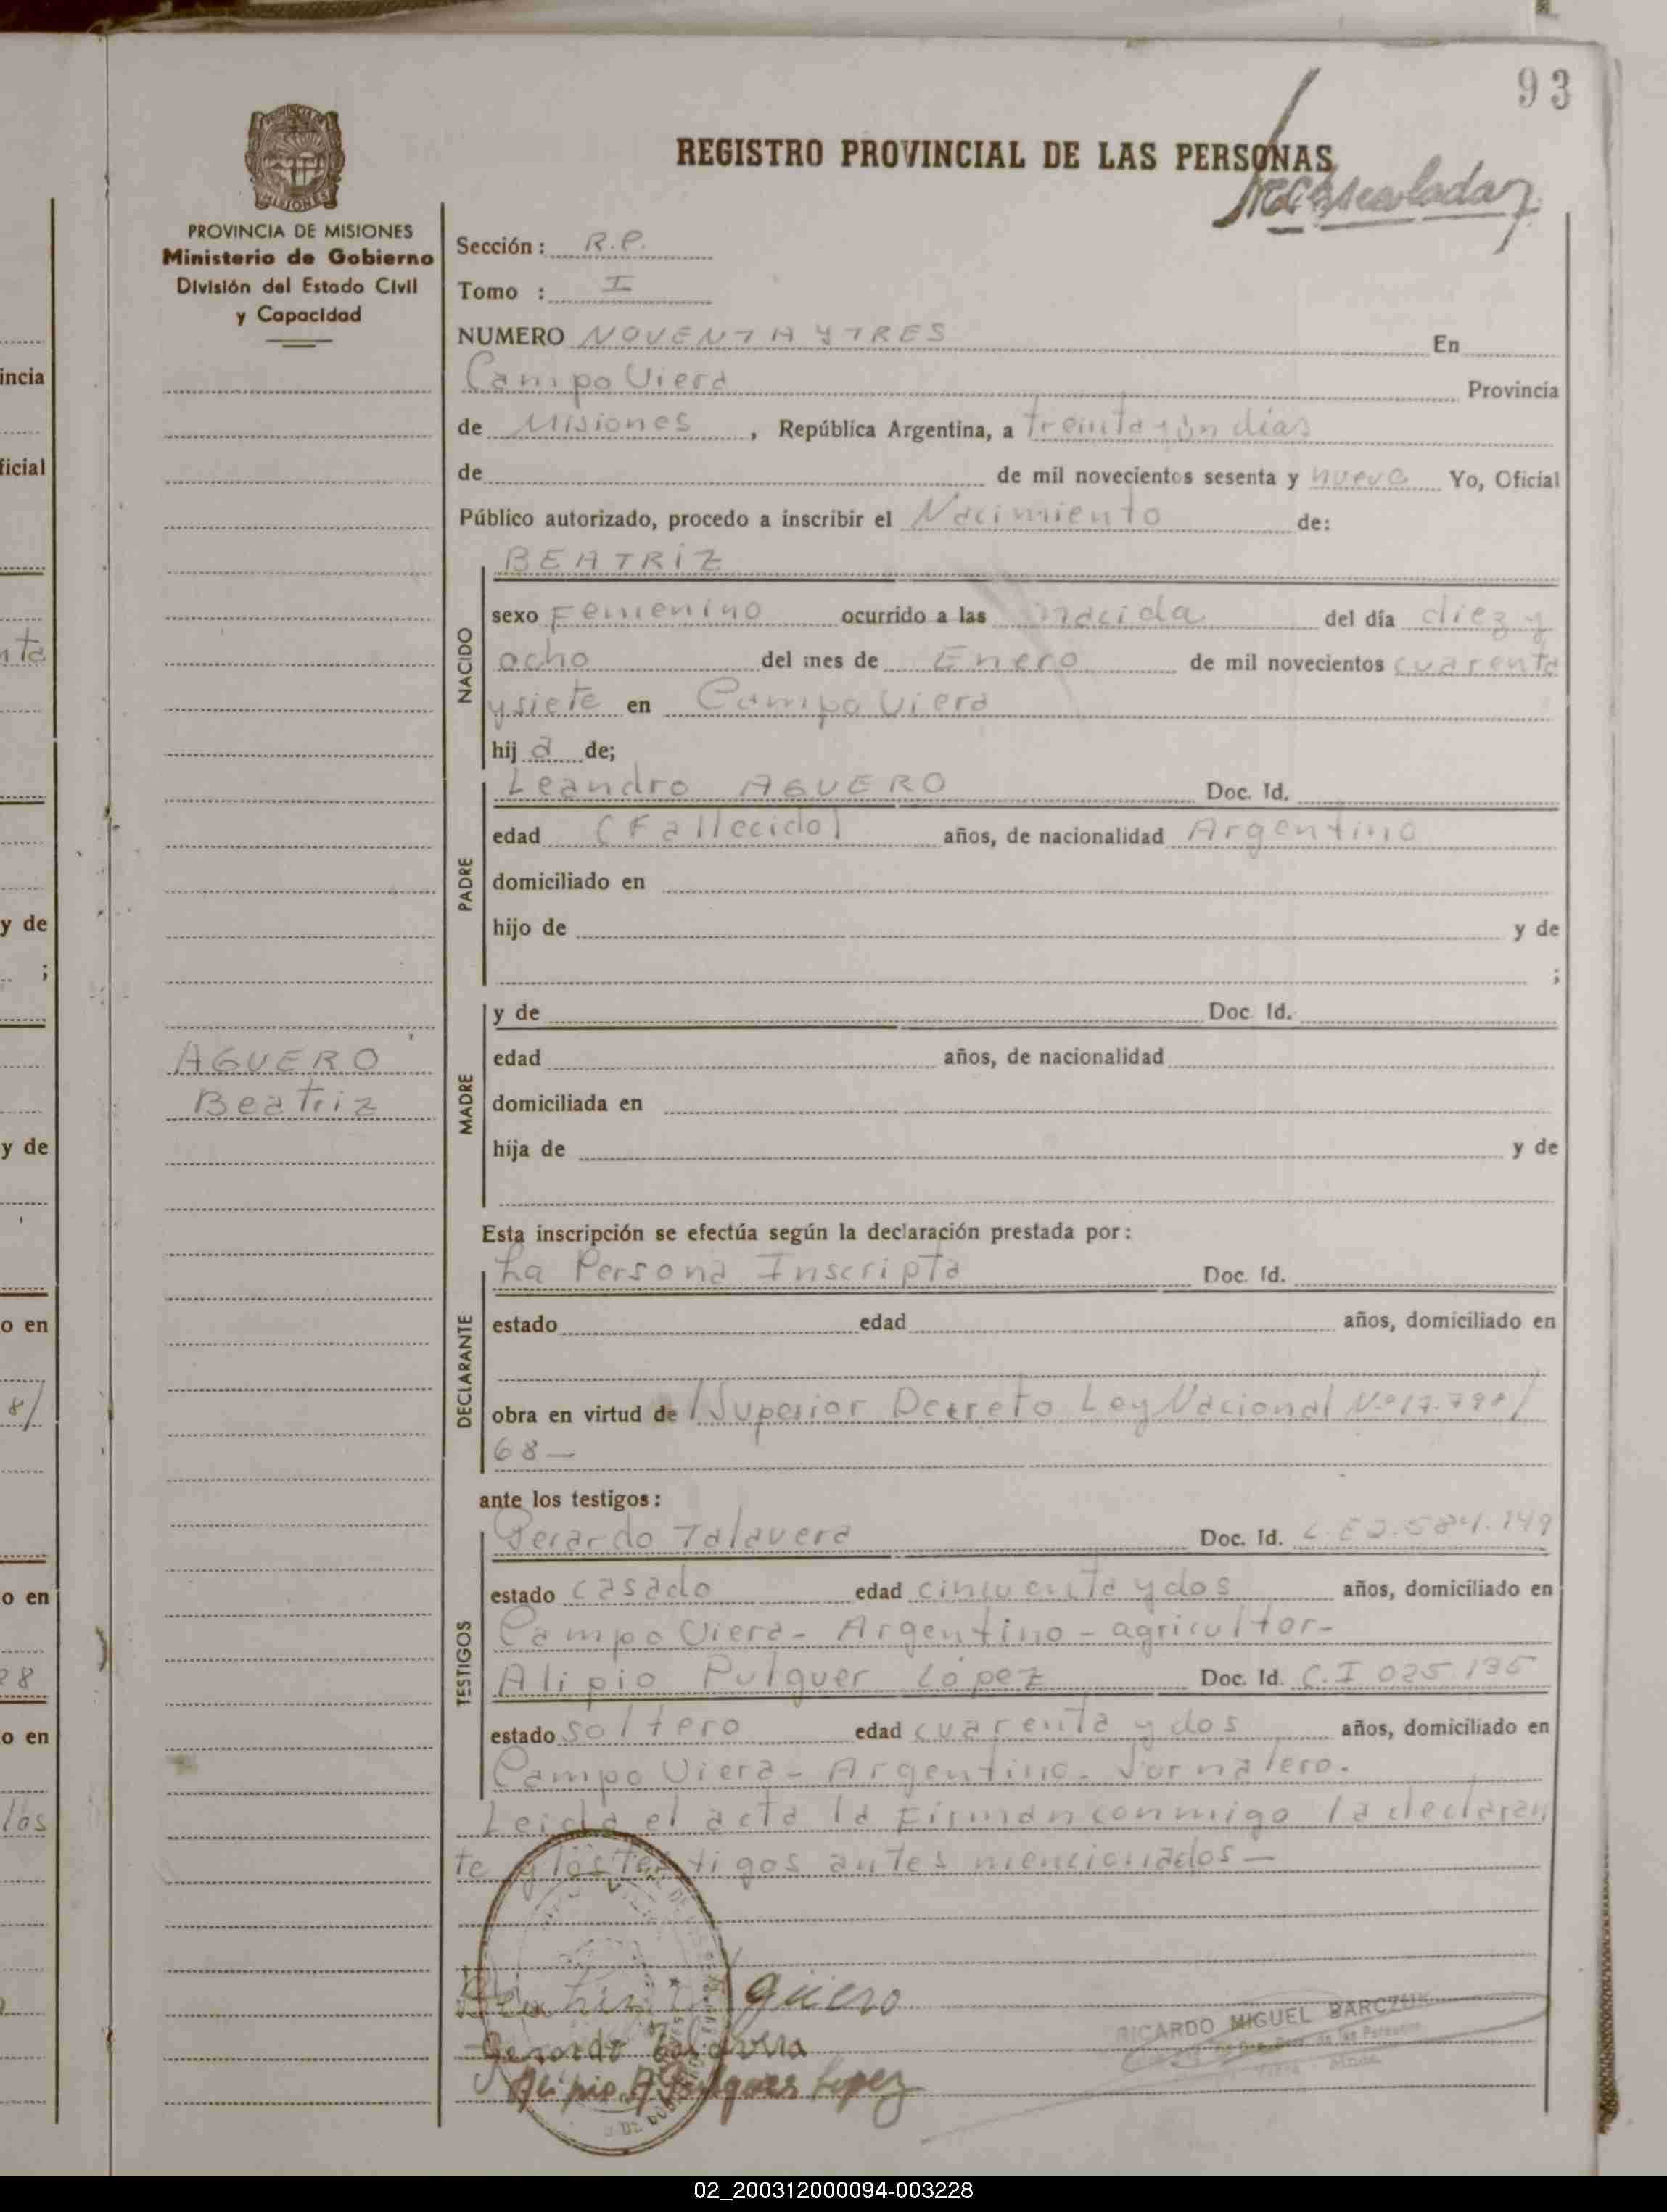 93
REGISTRO PROVINCIAL DE LAS PERSONAS
PROVINCIA DE MISIONES
Ministerio de Gobierno
División del Estado Civil
y Capacidad
Sección: R.P.
Tomo : I
NUMERO NOVENTA Y TRES En
Campo Viera Provincia
de Misiones, República Argentina, a treinta y un días
de de mil novecientos sesenta y nueve Yo, Oficial
Público autorizado, procedo a inscribir el Nacimiento de:
NACIDO
BEATRIZ
sexo Femenino ocurrido a las nacida del día diez y
ocho del mes de Enero de mil novecientos cuarenta
y siete en Campo Viera
hij a de;
PADRE
Leandro AGUERO Doc. Id.
edad (Fallecido) años, de nacionalidad Argentino
domiciliado en
hijo de y de
;
MADRE
y de Doc. Id.
edad años, de nacionalidad
domiciliada en
hija de y de
AGUERO
Beatriz
Esta inscripción se efectúa según la declaración prestada por:
DECLARANTE
La Persona Inscripta Doc. Id.
estado edad años, domiciliado en
obra en virtud de / Superior Decreto Ley Nacional Nº 17.798/
68—
ante los testigos:
TESTIGOS
Gerardo Talavera Doc. Id. L.E 2.584.149
estado casado edad cincuenta y dos años, domiciliado en
Campo Viera - Argentino - agricultor-
Alipio Pulguer López Doc. Id. C.I 025.135
estado soltero edad cuarenta y dos años, domiciliado en
Campo Viera - Argentino - Jornalero.
Leida el acta la Firman conmigo la declaran
te y los testigos antes mencionados—
Beatriz Agüero
Gerardo Talavera
Alipio Pulguer Lopez
RICARDO MIGUEL BARCZUK
incia
ficial
y de
;
y de
o en
8/
o en
28
o en
los
02_200312000094-003228